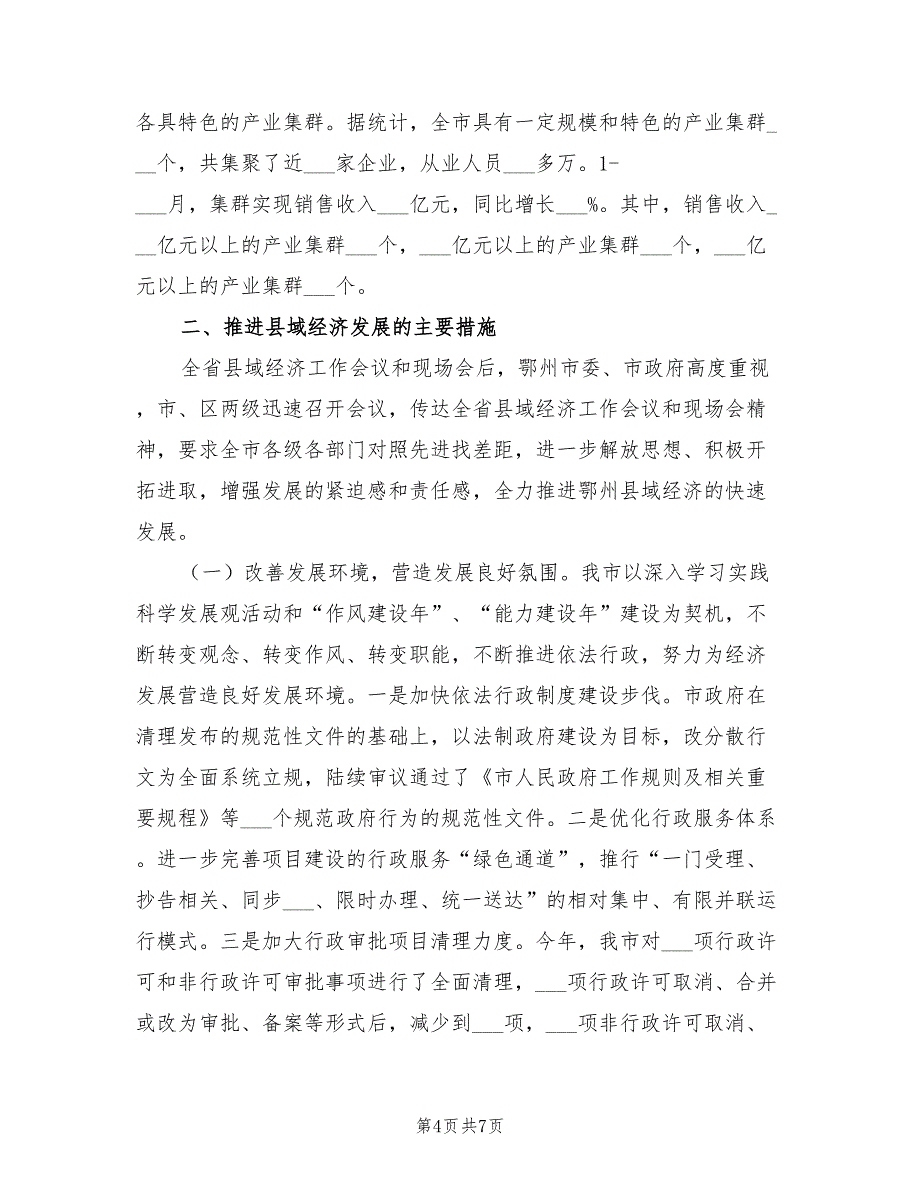 各具特色的产业集群。据统计，全市具有一定规模和特色的产业集群_
__个，共集聚了近___家企业，从业人员___多万。1-
___月，集群实现销售收入___亿元，同比增长___%。其中，销售收入_
__亿元以上的产业集群___个，___亿元以上的产业集群___个，___亿
元以上的产业集群___个。
二、推进县域经济发展的主要措施
全省县域经济工作会议和现场会后，鄂州市委、市政府高度重视
，市、区两级迅速召开会议，传达全省县域经济工作会议和现场会精
神，要求全市各级各部门对照先进找差距，进一步解放思想、积极开
拓进取，增强发展的紧迫感和责任感，全力推进鄂州县域经济的快速
发展。
（一）改善发展环境，营造发展良好氛围。我市以深入学习实践
科学发展观活动和“作风建设年”、“能力建设年”建设为契机，不
断转变观念、转变作风、转变职能，不断推进依法行政，努力为经济
发展营造良好发展环境。一是加快依法行政制度建设步伐。市政府在
清理发布的规范性文件的基础上，以法制政府建设为目标，改分散行
文为全面系统立规，陆续审议通过了《市人民政府工作规则及相关重
要规程》等___个规范政府行为的规范性文件。二是优化行政服务体系
。进一步完善项目建设的行政服务“绿色通道”，推行“一门受理、
抄告相关、同步___、限时办理、统一送达”的相对集中、有限并联运
行模式。三是加大行政审批项目清理力度。今年，我市对___项行政许
可和非行政许可审批事项进行了全面清理，___项行政许可取消、合并
或改为审批、备案等形式后，减少到___项，___项非行政许可取消、
第4页共7页